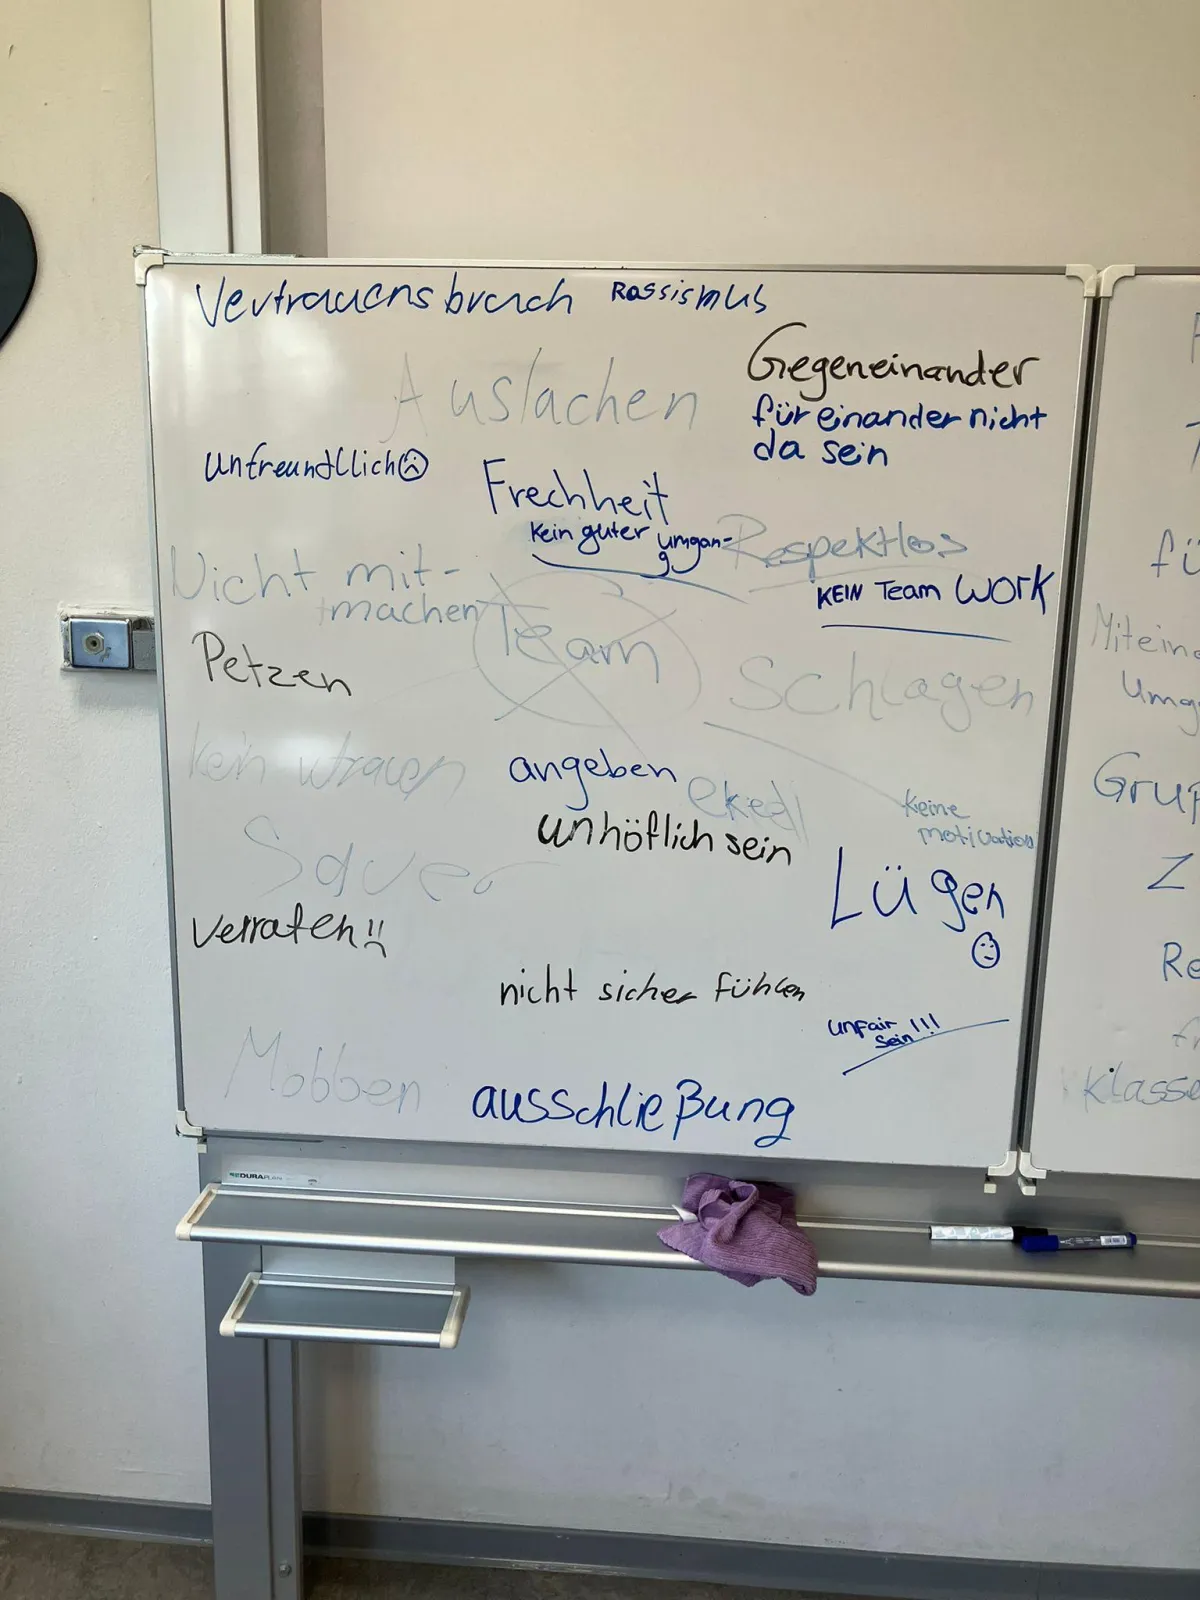 Vertrauensbruch Rassismus
Auslachen
Gegeneinander
für einander nicht
da sein
unfreundllich
Frechheit
kein guter umgan-
g
Respektlos
KEIN Team WORK
Nicht mit-
machen
Team
Petzen
Schlagen
kein
angeben
unhöflich sein
Keine
motivation
Sauer
Lügen
Verraten!!
nicht sicher fühlen
unfair
sein!!!
Mobben
ausschließung
DURAPLAN
fü
Miteina
umg
Grup
Z
Re
fr
klasse